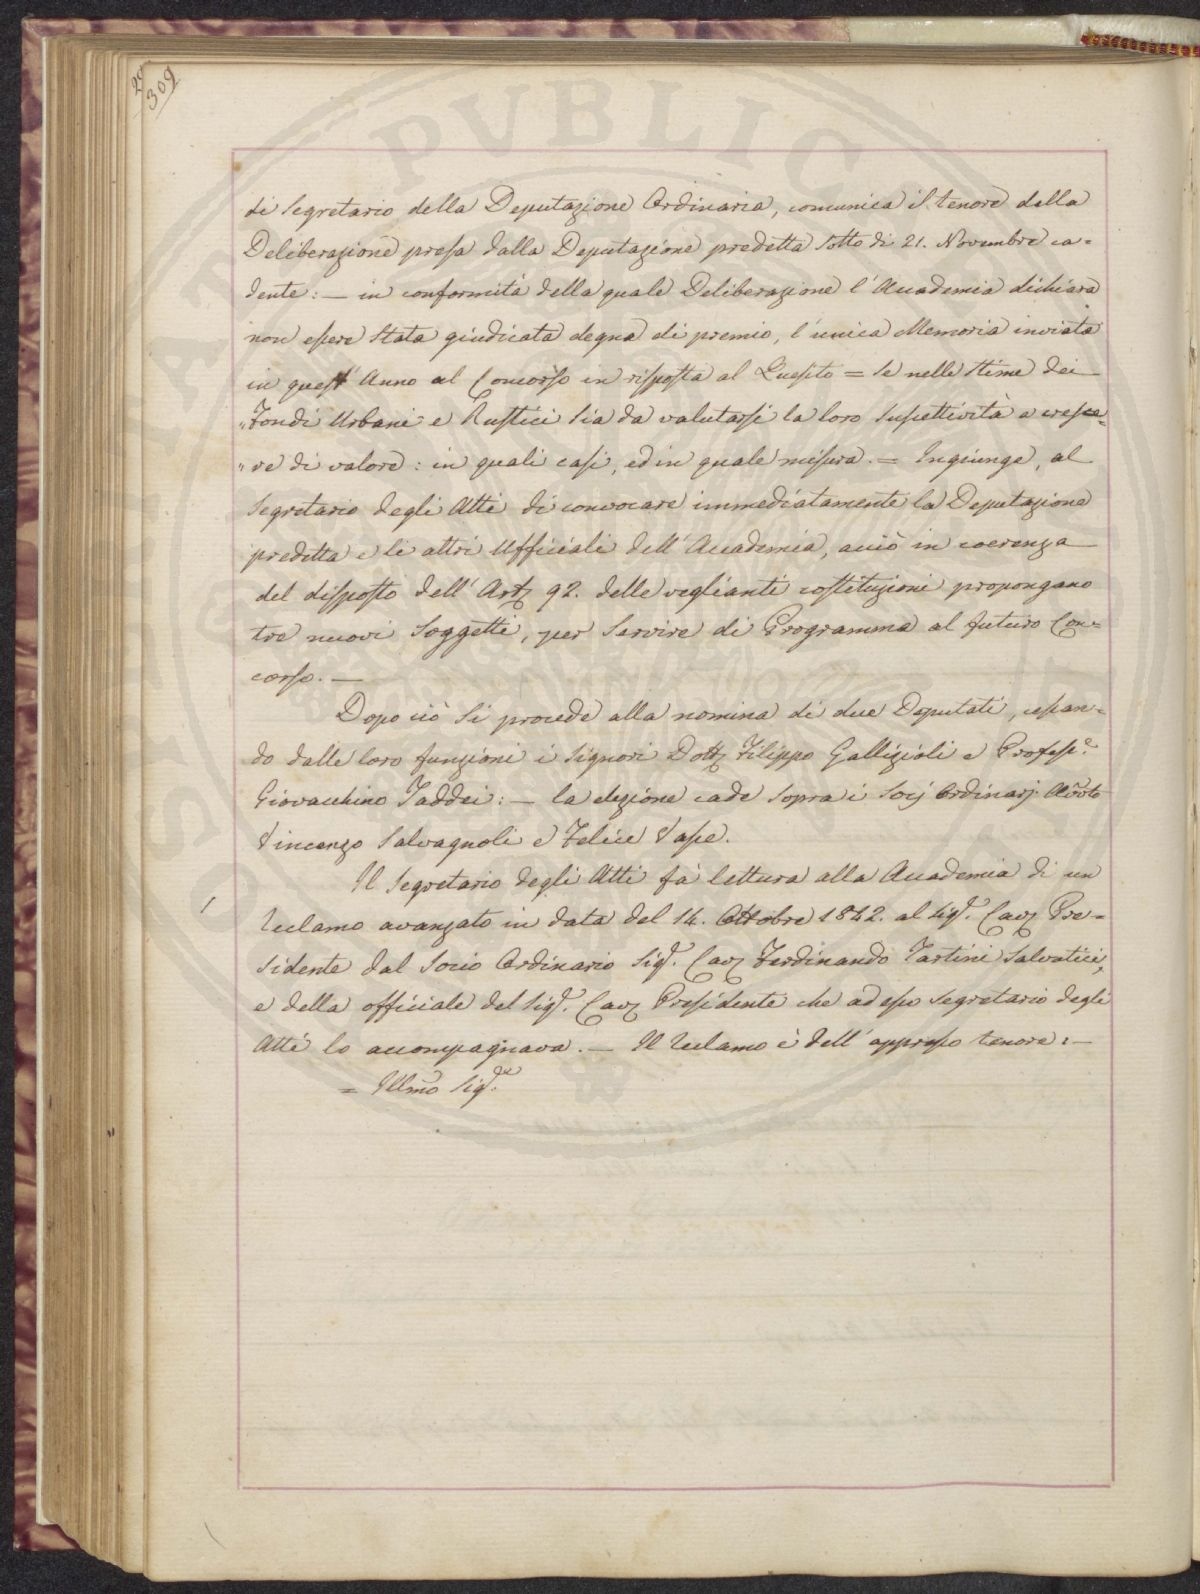 309
di Segretario della Deputazione Ordinaria, comunica il tenore della
Deliberazione presa dalla Deputazione predetta sotto dì 21. Novembre ca=
dente: — in conformità della quale Deliberazione l'Accademia dichiara
non essere stata giudicata degna di premio, l'unica Memoria inviata
in quest'Anno al Concorso in risposta al Quesito = Se nelle stime dei
"Fondi Urbani e Rustici sia da valutarsi la loro suscettività a cresce=
"re di valore: in quali casi, ed in quale misura. = Ingiunge, al
Segretario degli Atti di convocare immediatamente la Deputazione
predetta e li altri Ufficiali dell'Accademia, acciò in coerenza
del disposto dell'Art. 92. delle veglianti costituzioni propongano
tre nuovi soggetti, per servire di Programma al futuro Con=
corso. —
Dopo ciò si procede alla nomina di due Deputati, cessan=
do dalle loro funzioni i Signori Dott. Filippo Gallizioli e Profess.e
Giovacchino Taddei: — la elezione cade sopra i Socj Ordinarj Avv.to
Vincenzo Salvagnoli e Felice Vasse.
Il Segretario degli Atti fà lettura alla Accademia di un
Reclamo avanzato in data del 14. Ottobre 1842. al Sig.r Cav. Pre=
sidente dal Socio Ordinario Sig.r Cav. Ferdinando Tartini Salvatici,
e della officiale del Sig.r Cav. Presidente che ad esso Segretario degli
Atti lo accompagnava. — Il Reclamo è dell'appresso tenore: —
= Ill.mo Sig.re
PUBLIC